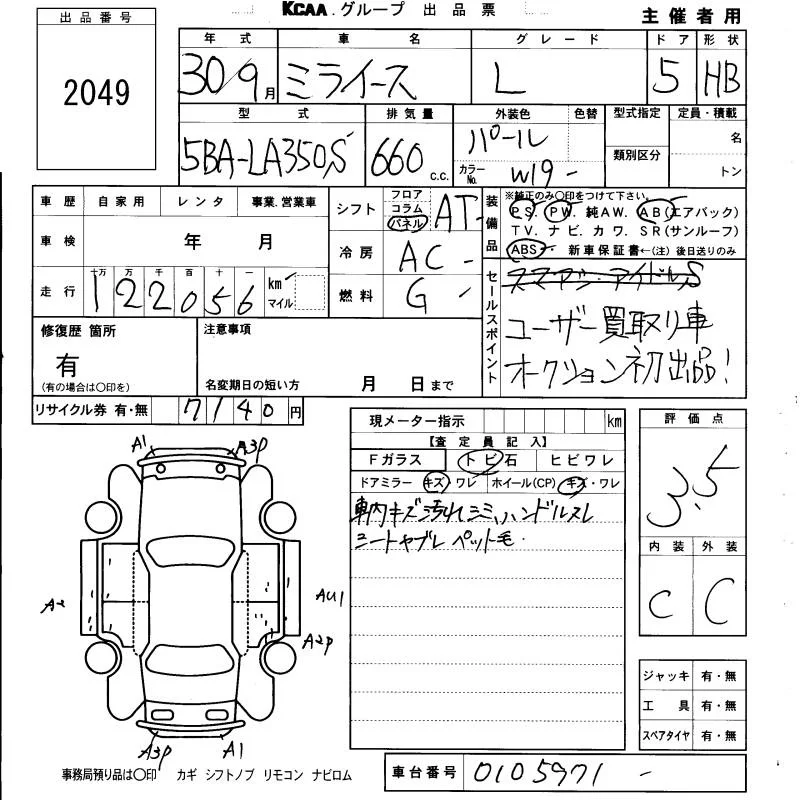 KCAA.グループ 出品票
主催者用
出品番号
2049
年式 車名 グレード ドア 形状
30/9月 ミライース L 5 HB
型式 排気量 外装色 色替 型式指定 定員・積載
5BA-LA350S 660 c.c. パール 名
カラーNo. W19 類別区分 トン
車歴 自家用 レンタ 事業.営業車
車検 年 月
走行 十万 万 千 百 十 一
122056 km マイル
シフト フロア コラム パネル AT
冷房 AC
燃料 G
装備品
※純正のみ○印をつけて下さい。
P.S. PW. 純AW. AB(エアバック)
TV. ナビ. カワ. SR(サンルーフ)
ABS 新車保証書←(注)後日送りのみ
セールスポイント
ユーザー買取り車
オークション初出品!
修復歴 箇所
有
(有の場合は○印を)
注意事項
名変期日の短い方 月 日まで
リサイクル券 有・無 7140円
現メーター指示 km
【査定員記入】
Fガラス トビ石 ヒビワレ
ドアミラー キズ・ワレ ホイール(CP) キズ・ワレ
車内キズ汚れシミ、ハンドルスレ
シートヤブレ ペット毛.
評価点
3.5
内装 外装
C C
ジャッキ 有・無
工具 有・無
スペアタイヤ 有・無
A1 A3P
A2
AU1
A2P
A3P A1
事務局預り品は○印 カギ シフトノブ リモコン ナビロム
車台番号 0105971